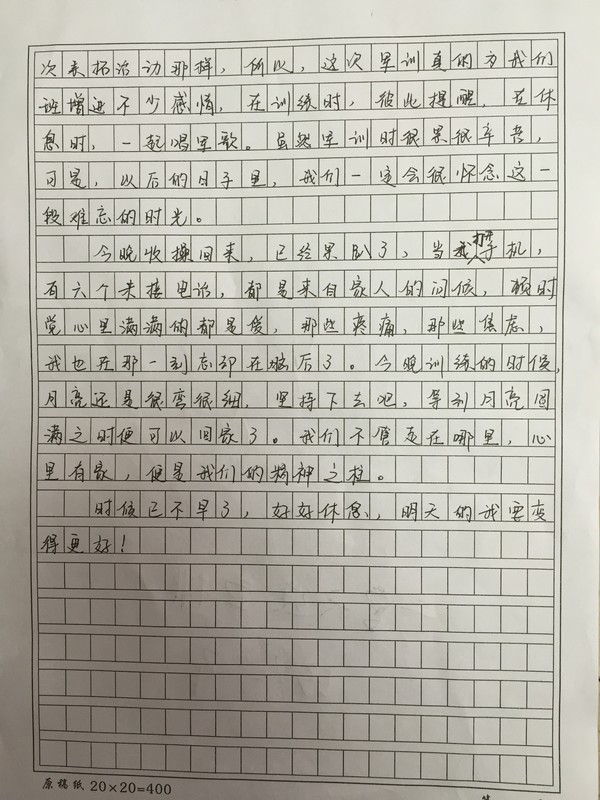 次来拓活动那样，所以，这次军训真的为我们
班增进不少感情，在训练时，彼此提醒，在休
息时，一起唱军歌。虽然军训时很累很辛苦，
可是，以后的日子里，我们一定会很怀念这一
段难忘的时光。
今晚收操回来，已经累趴了，当我打开手机，
有六个未接电话，都是来自家人的问候，顿时
觉心里满满的都是爱，那些疼痛，那些焦虑，
我也在那一刻忘却在脑后了。今晚训练的时候，
月亮还是很弯很细，坚持下去吧，等到月亮圆
满之时便可以回家了。我们不管走在哪里，心
里有家，便是我们的精神之柱。
时候已不早了，好好休息，明天的我要变
得更好！
原稿纸 20×20=400